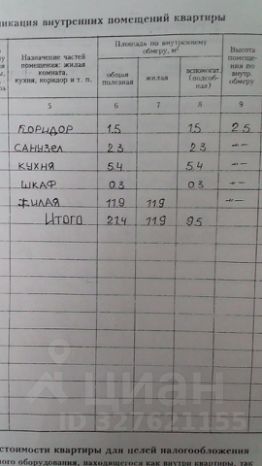 ликация внутренних помещений квартиры
Назначение частей помещения: жилая комната, кухня, коридор и т. п.
Площадь по внутреннему обмеру, м²
общая полезная
жилая
вспомогат. (подсобная)
Высота помещения по внутр. обмеру
5 6 7 8 9
КОРИДОР 1.5 1.5 2.5
САНУЗЕЛ 2.3 2.3 -"-
КУХНЯ 5.4 5.4 -"-
ШКАФ 0.3 0.3 -"-
ЖИЛАЯ 11.9 11.9 -"-
ИТОГО 21.4 11.9 9.5
ЦИАН
ID 527621155
стоимости квартиры для целей налогообложения
ного оборудования, находящегося как внутри квартиры, так